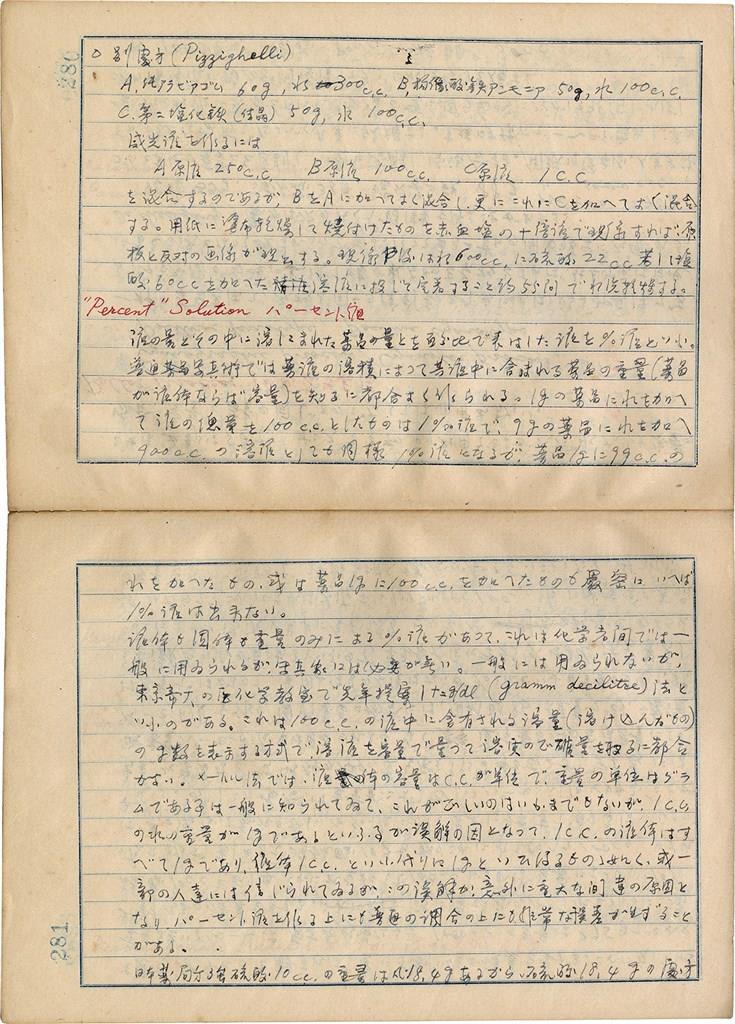 280
○ 別處方 (Pizzighelli)
A, 純アラビアゴム 60g, 水 300c.c. B, 枸櫞酸鉄アンモニア 50g, 水 100c.c.
C. 第二塩化鉄 (結晶) 50g, 水 100c.c.
感光液を作るには
A原液 250c.c. B原液 100c.c. C原液 1c.c.
を混合するのであるが, BをAに加へてよく混合し, 更にこれにCを加へてよく混合
する。用紙に塗布乾燥して焼付けたものを赤血塩の十倍液で現像すれば, 原
板と反対の画像が現出する。現像後は水600cc, に硫酸22cc若しは塩
酸60ccを加へた溶液に投じて定着すること約 で水洗
"Percent" Solution パーセント液
液の量とその中に溶しこまれた薬品の量とを百分比で表はした液を%液といふ。
普通写真術では薬液の容積によって薬液中に含まれる薬品の重量(薬品
が液体ならば容量)を知るに都合よく作られる。1gの薬品に水を加へ
て液の総量を100c.c.としたものは1%液で, 9gの薬品に水を加へ
900c.c.の溶液としても同様1%液となるが, 薬品1gに99c.c.の
水を加へたもの, 或は薬品1gに100c.c.を加へたものも厳密にいへば
1%液は出来ない。
液体も固体も重量のみによる%液があって, これは化学者間では一
般に用ゐられるが, 写真術には必要が無い。一般には用ゐられないが,
東京帝大の医化学教室で先年提案したg/dl (gramm decilitre) 法と
いふのがある。これは100c.c.の液中に含有される溶量(溶け込んだもの)
のg数を表示する方式で, 溶液を容量で量って溶質の を知るに都合
がよい。メートル法では, 液体の容量はc.c.が単位で, 重量の単位はグラ
ムである事は一般に知られてゐて, これが正しいのはいふまでもないが, 1c.c.
の水の重量が1gであるといふ事が誤解の因となって, 1c.c.の液体はす
べて1gであり, 液体1c.c.といふ代りに1gといひ得るものゝ如く, 或一
部の人達には信じられてゐるが, この誤解が, 意外に重大な間違の原因と
なり, パーセント液を作る上にも普通の調合の上にも非常な誤差が生ずること
がある。
日本薬局方強硫酸10cc.の重量は凡18.4gあるから, 硫酸18.4gの處方
281